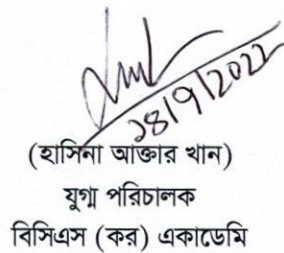 ১৪/৯/2022
(হাসিনা আক্তার খান)
যুগ্ম পরিচালক
বিসিএস (কর) একাডেমি